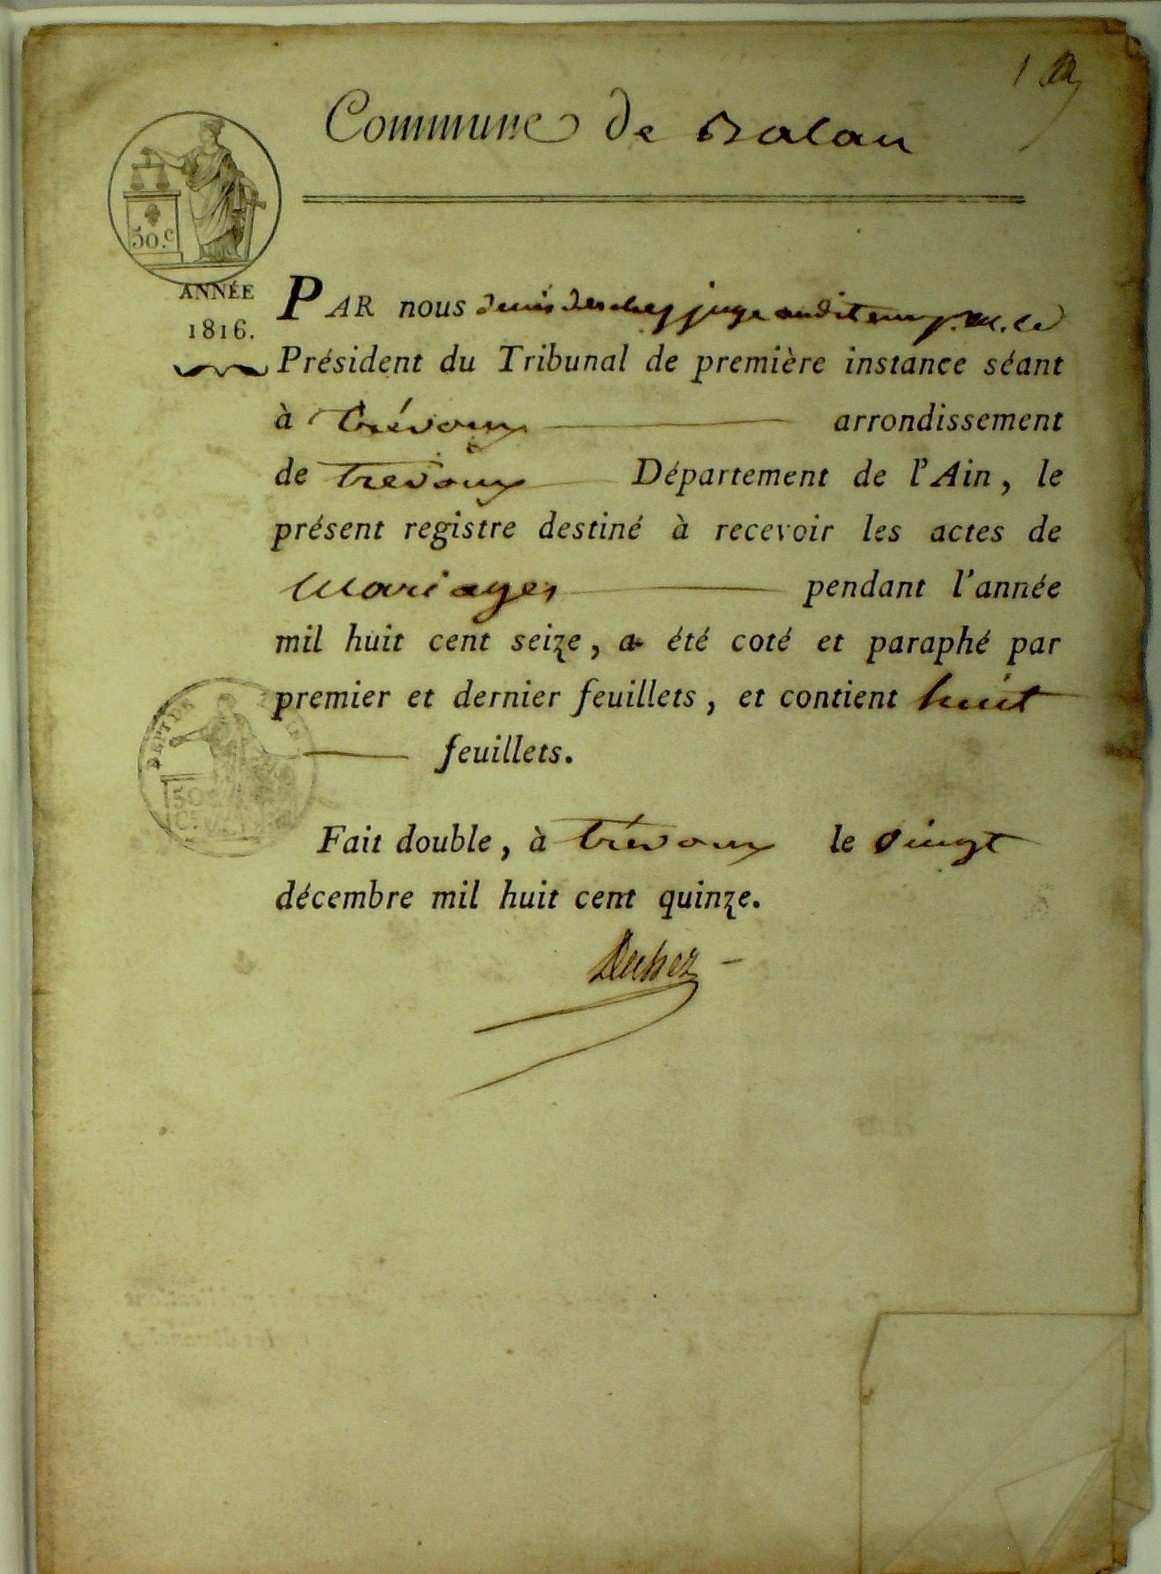 1
Commune de Balan
50.c
ANNÉE
1816.
PAR nous denis deschez juge auditeur p. m. le
Président du Tribunal de première instance séant
à trévoux arrondissement
de trevoux Département de l'Ain, le
présent registre destiné à recevoir les actes de
Mariages pendant l'année
mil huit cent seize, a été coté et paraphé par
premier et dernier feuillets, et contient huit
feuillets.
Fait double, à trévoux le vingt
décembre mil huit cent quinze.